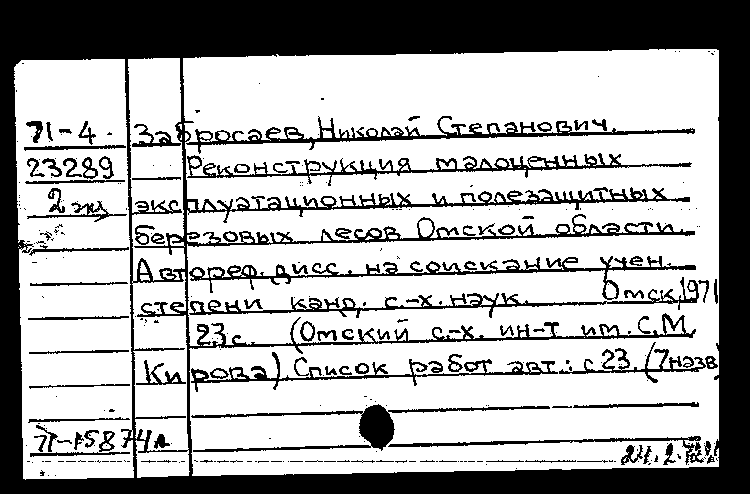 71-4. Забросаев, Николай Степанович.
23289 Реконструкция малоценных
2 экз эксплуатационных и полезащитных
березовых лесов Омской области.
Автореф. дисс. на соискание учен.
степени канд. с.-х. наук. Омск, 1971
23с. (Омский с.-х. ин-т им. С.М.
Кирова). Список работ авт.: с 23. (7 назв